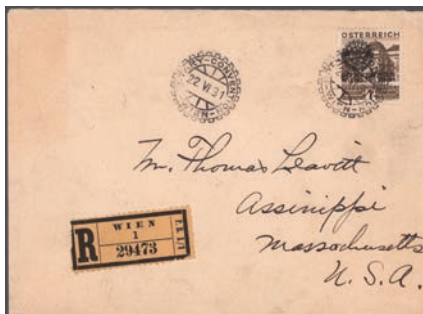 ÖSTERREICH
22 VI 31
Mr. Thomas Leavitt
Assinippi
Massachusetts
U. S. A.
R
WIEN
1
29473